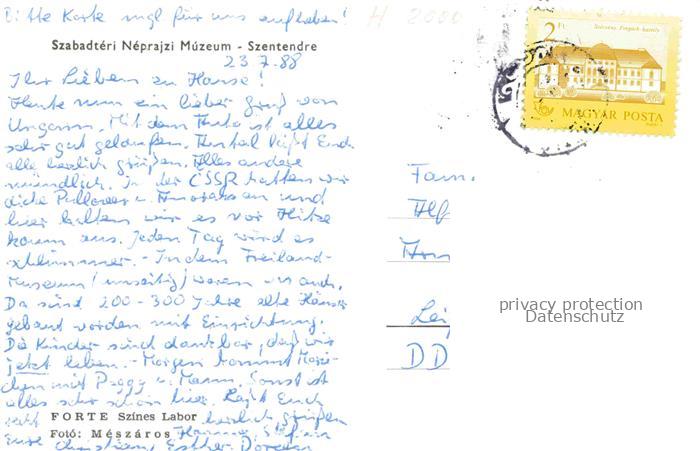 Bitte Karte mgl für uns aufheben!
H 2000
Szabadtéri Néprajzi Múzeum - Szentendre
23.7.88
Ihr Lieben zu Hause!
Heute nun ein lieber Gruß von
Ungarn. Mit dem Auto ist alles
sehr gut gelaufen. läßt Euch
alle herzlich grüßen. Alles andere
mündlich. In der ČSSR hatten wir
dicke Pullover u. Anoraks an und
hier halten wir es vor Hitze
kaum aus. Jeden Tag wird es
schlimmer. - In dem Freiland-
Museum (umseitig) waren wir auch.
Da sind 200-300 Jahre alte Häuser
gebaut worden mit Einrichtung.
Die Kinder sind dankbar, daß wir
jetzt leben. - Morgen kommt
mit Peggy u. Mann. Sonst ist
alles sehr schön hier. Laßt Euch
herzlich grüßen
FORTE Színes Labor
Fotó: Mészáros
Eure Christiane, Esther
2 Ft
MAGYAR POSTA
Fam.
Alf
Lei
DD
privacy protection
Datenschutz